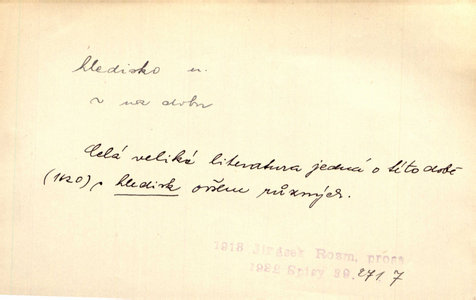 hledisko n.
~ na dobu
Celá veliká literatura jedná o této době
(1620), hledisk ovšem různých.
1918 Jirásek Rozm. prósa
1932 Spisy 39. 271. 7